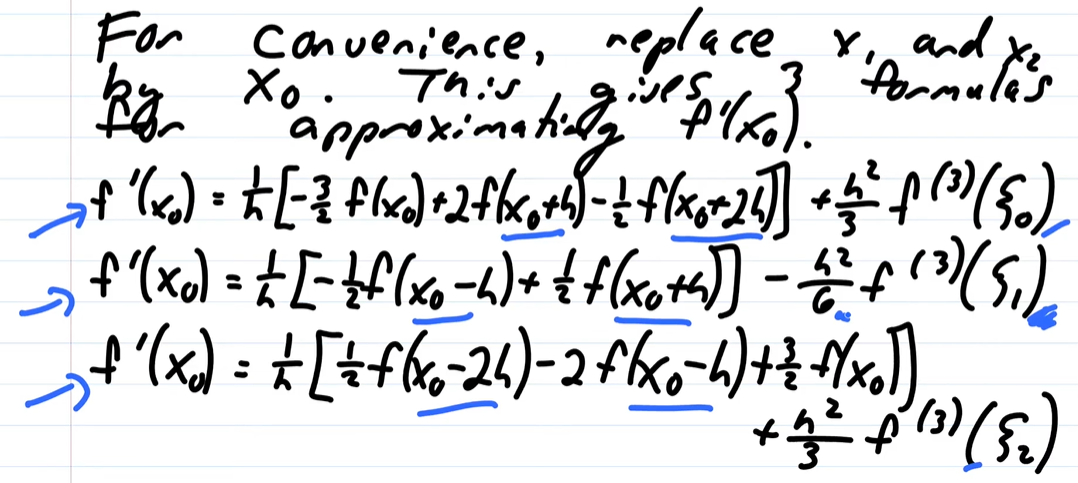 For convenience, replace x₁ and x₂
by x₀. This gives 3 formulas
for approximating f'(x₀).
f'(x₀) = 1/h [-3/2 f(x₀) + 2f(x₀+h) - 1/2 f(x₀+2h)] + h²/3 f⁽³⁾(ξ₀)
f'(x₀) = 1/h [-1/2 f(x₀-h) + 1/2 f(x₀+h)] - h²/6 f⁽³⁾(ξ₁)
f'(x₀) = 1/h [1/2 f(x₀-2h) - 2f(x₀-h) + 3/2 f(x₀)]
+ h²/3 f⁽³⁾(ξ₂)